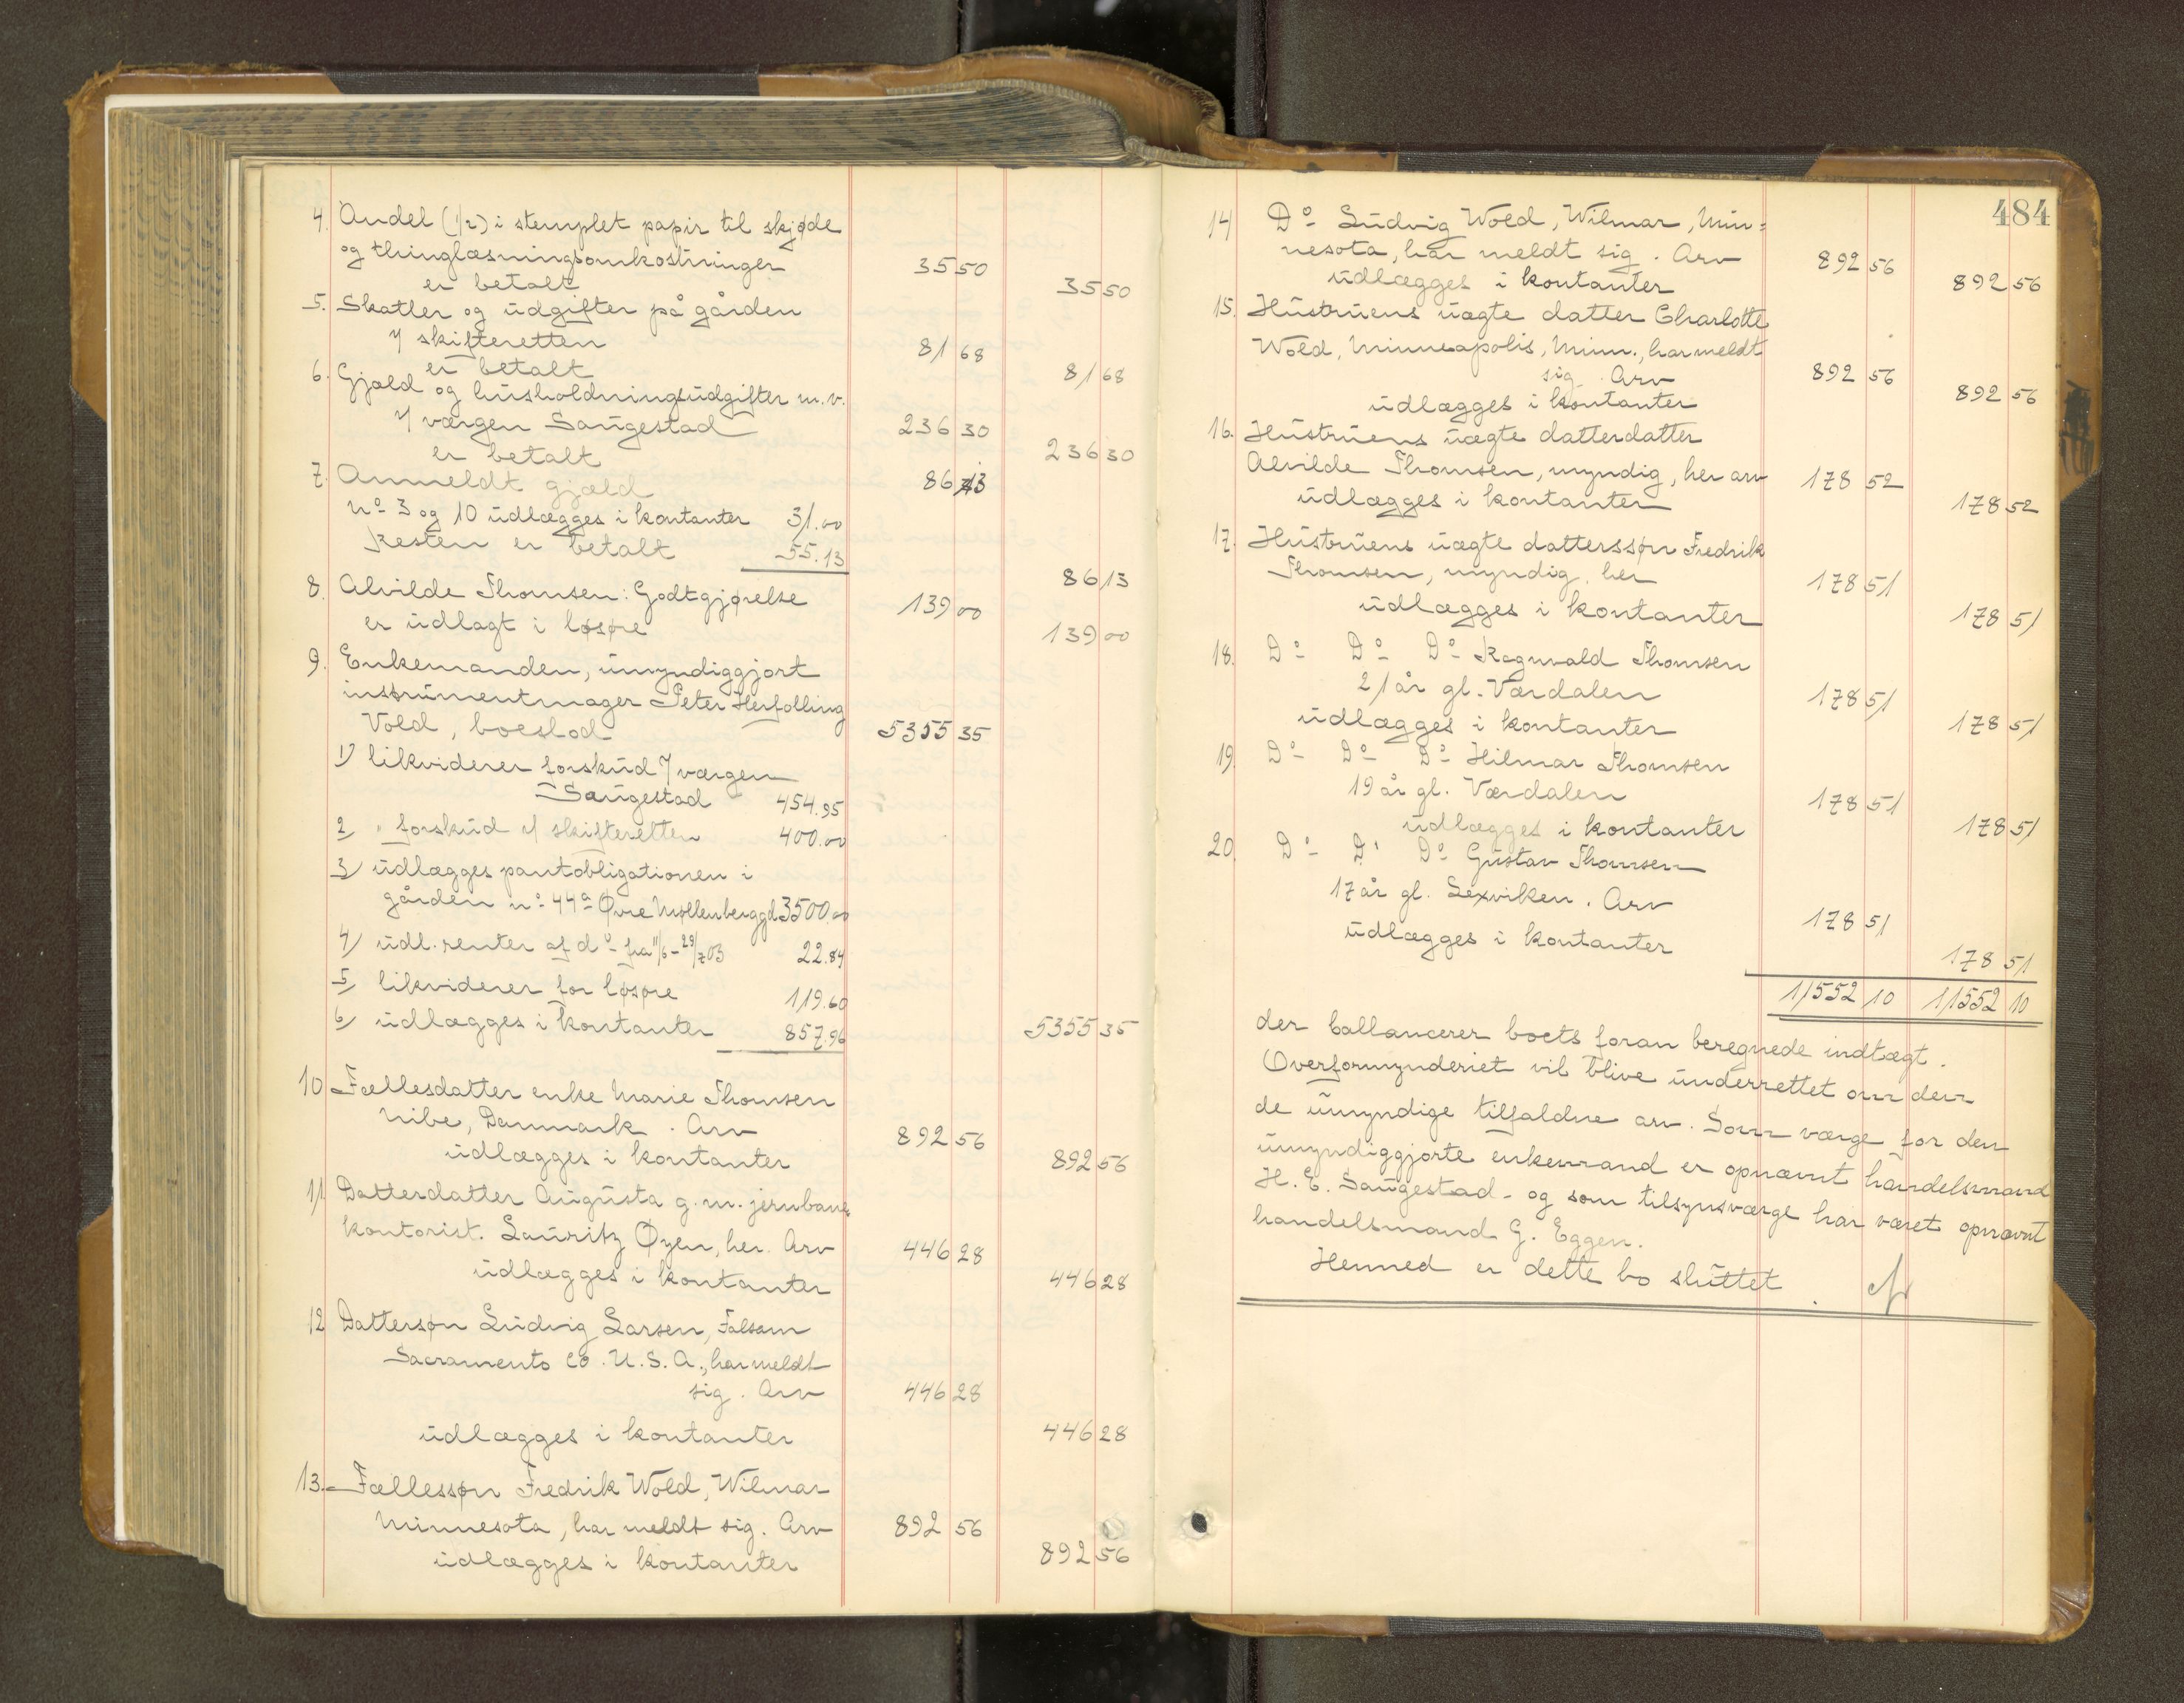 4. Andel (1/2) i stemplet papir til skjøde
og thinglæsningsomkostninger 35 50
er betalt 35 50
5. Skatter og udgifter på gården
v/ skifteretten 81 68
er betalt 81 68
6. Gjæld og husholdningsudgifter m.v.
v/ værgen Saugestad 236 30
er betalt 236 30
7. Anmeldt gjæld 86 13
No 3 og 10 udlægges i kontanter 31.00
Resten er betalt 55.13
86 13
8. Alvilde Thomsen: Godtgjørelse 139 00
er udlagt i løsøre 139 00
9. Enkemanden, umyndiggjort
instrumentmager Peter Herfolling
Vold, boeslod 5355 35
1) likviderer forskud v/ værgen
Saugestad 454.95
2) " forskud v/ skifteretten 400.00
3) udlægges pantobligationen i
gården no 44a Øvre Møllenberggd 3500.00
4) udl. renter af do fra 11/6 - 29/7 03 22.84
5) likviderer for løsøre 119.60
6) udlægges i kontanter 857.96 5355 35
10 Fællesdatter enke Marie Thomsen
Nibe, Danmark. Arv 892 56
udlægges i kontanter 892 56
11 Datterdatter Augusta g. m. jernbane
kontorist. Lauritz Øyen, her. Arv 446 28
udlægges i kontanter 446 28
12 Dattersøn Ludvig Larsen, Folsom
Sacramento Co. U.S.A., har meldt
sig. Arv 446 28
udlægges i kontanter 446 28
13. Fællessøn Fredrik Wold, Wilmar
Minnesota, har meldt sig. Arv 892 56
udlægges i kontanter 892 56
484
14 Do Ludvig Wold, Wilmar, Min=
nesota, har meldt sig. Arv 892 56
udlægges i kontanter 892 56
15. Hustruens uægte datter Charlotte
Wold, Minneapolis, Minn., har meldt
sig. Arv 892 56
udlægges i kontanter 892 56
16. Hustruens uægte datterdatter
Alvilde Thomsen, myndig, her arv 178 52
udlægges i kontanter 178 52
17. Hustruens uægte datterssøn Fredrik
Thomsen, myndig, her 178 51
udlægges i kontanter 178 51
18. Do Do Do Ragnvald Thomsen
21 år gl. Værdalen 178 51
udlægges i kontanter 178 51
19. Do Do Do Hilmar Thomsen
19 år gl. Værdalen 178 51
udlægges i kontanter 178 51
20. Do Do Do Gustav Thomsen
17 år gl. Lexviken. Arv 178 51
udlægges i kontanter 178 51
11552 10 11552 10
der ballancerer boets foran beregnede indtægt.
Overformynderiet vil blive underrettet om den
de umyndige tilfaldne arv. Som værge for den
umyndiggjorte enkemand er opnævnt handelsmand
H. E. Saugestad - og som tilsynsværge har været opnævnt
handelsmand G. Eggen.
Hermed er dette bo sluttet.